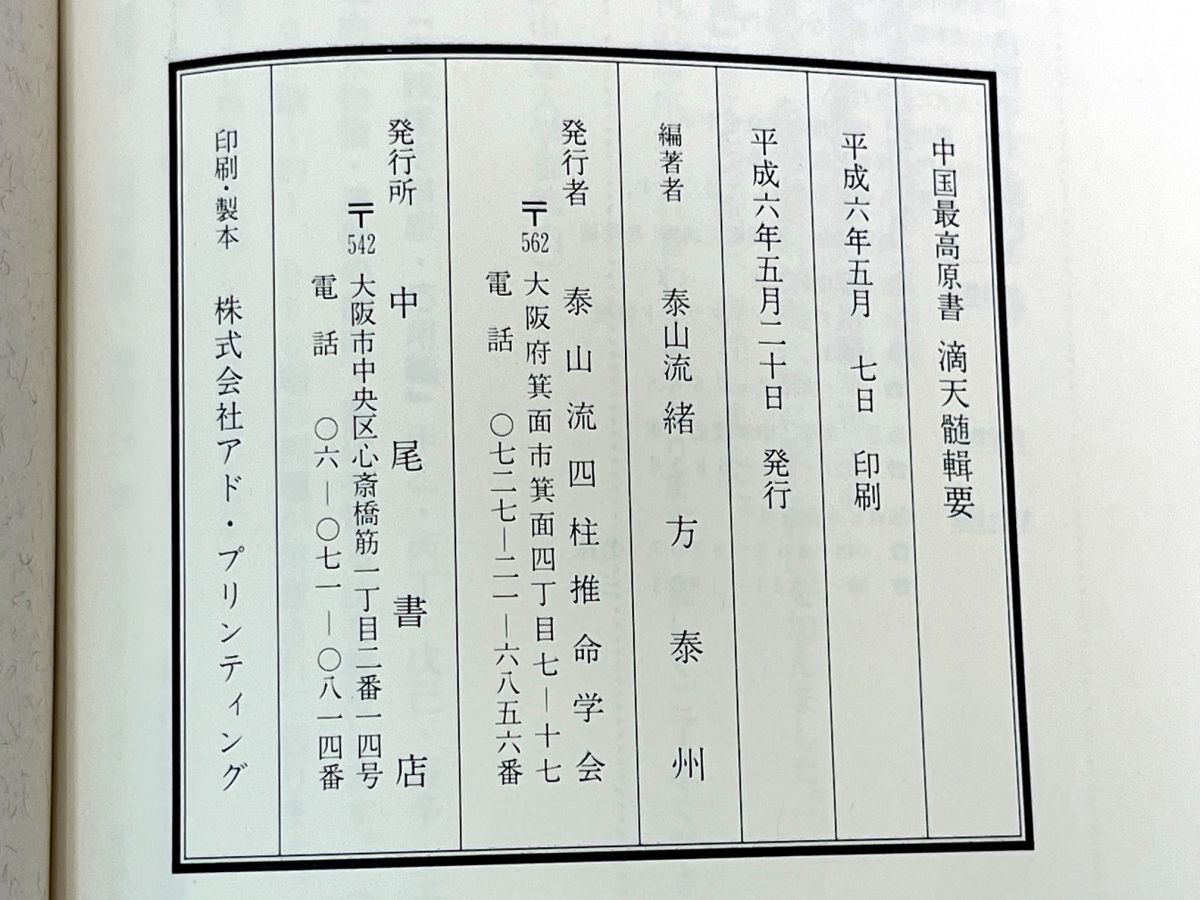 中国最高原書 滴天髄輯要
平成六年五月 七日 印刷
平成六年五月二十日 発行
編著者 泰山流緒 方 泰 州
発行者 泰山流四柱推命学会
〒562 大阪府箕面市箕面四丁目七―十七
電話 〇七二七―二一―六八五六番
発行所 中尾書店
〒542 大阪市中央区心斎橋筋一丁目二番一四号
電話 〇六―〇七一―〇八一四番
印刷・製本 株式会社アド・プリンティング